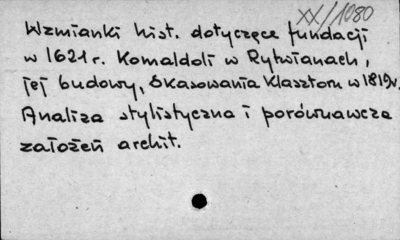 XX/1080
Wzmianki hist. dotyczące fundacji
w 1621 r. Komaldoli w Rytwianach,
jej budowy, skasowania klasztoru w 1819r.
Analiza stylistyczna i porównawcza
założeń archit.